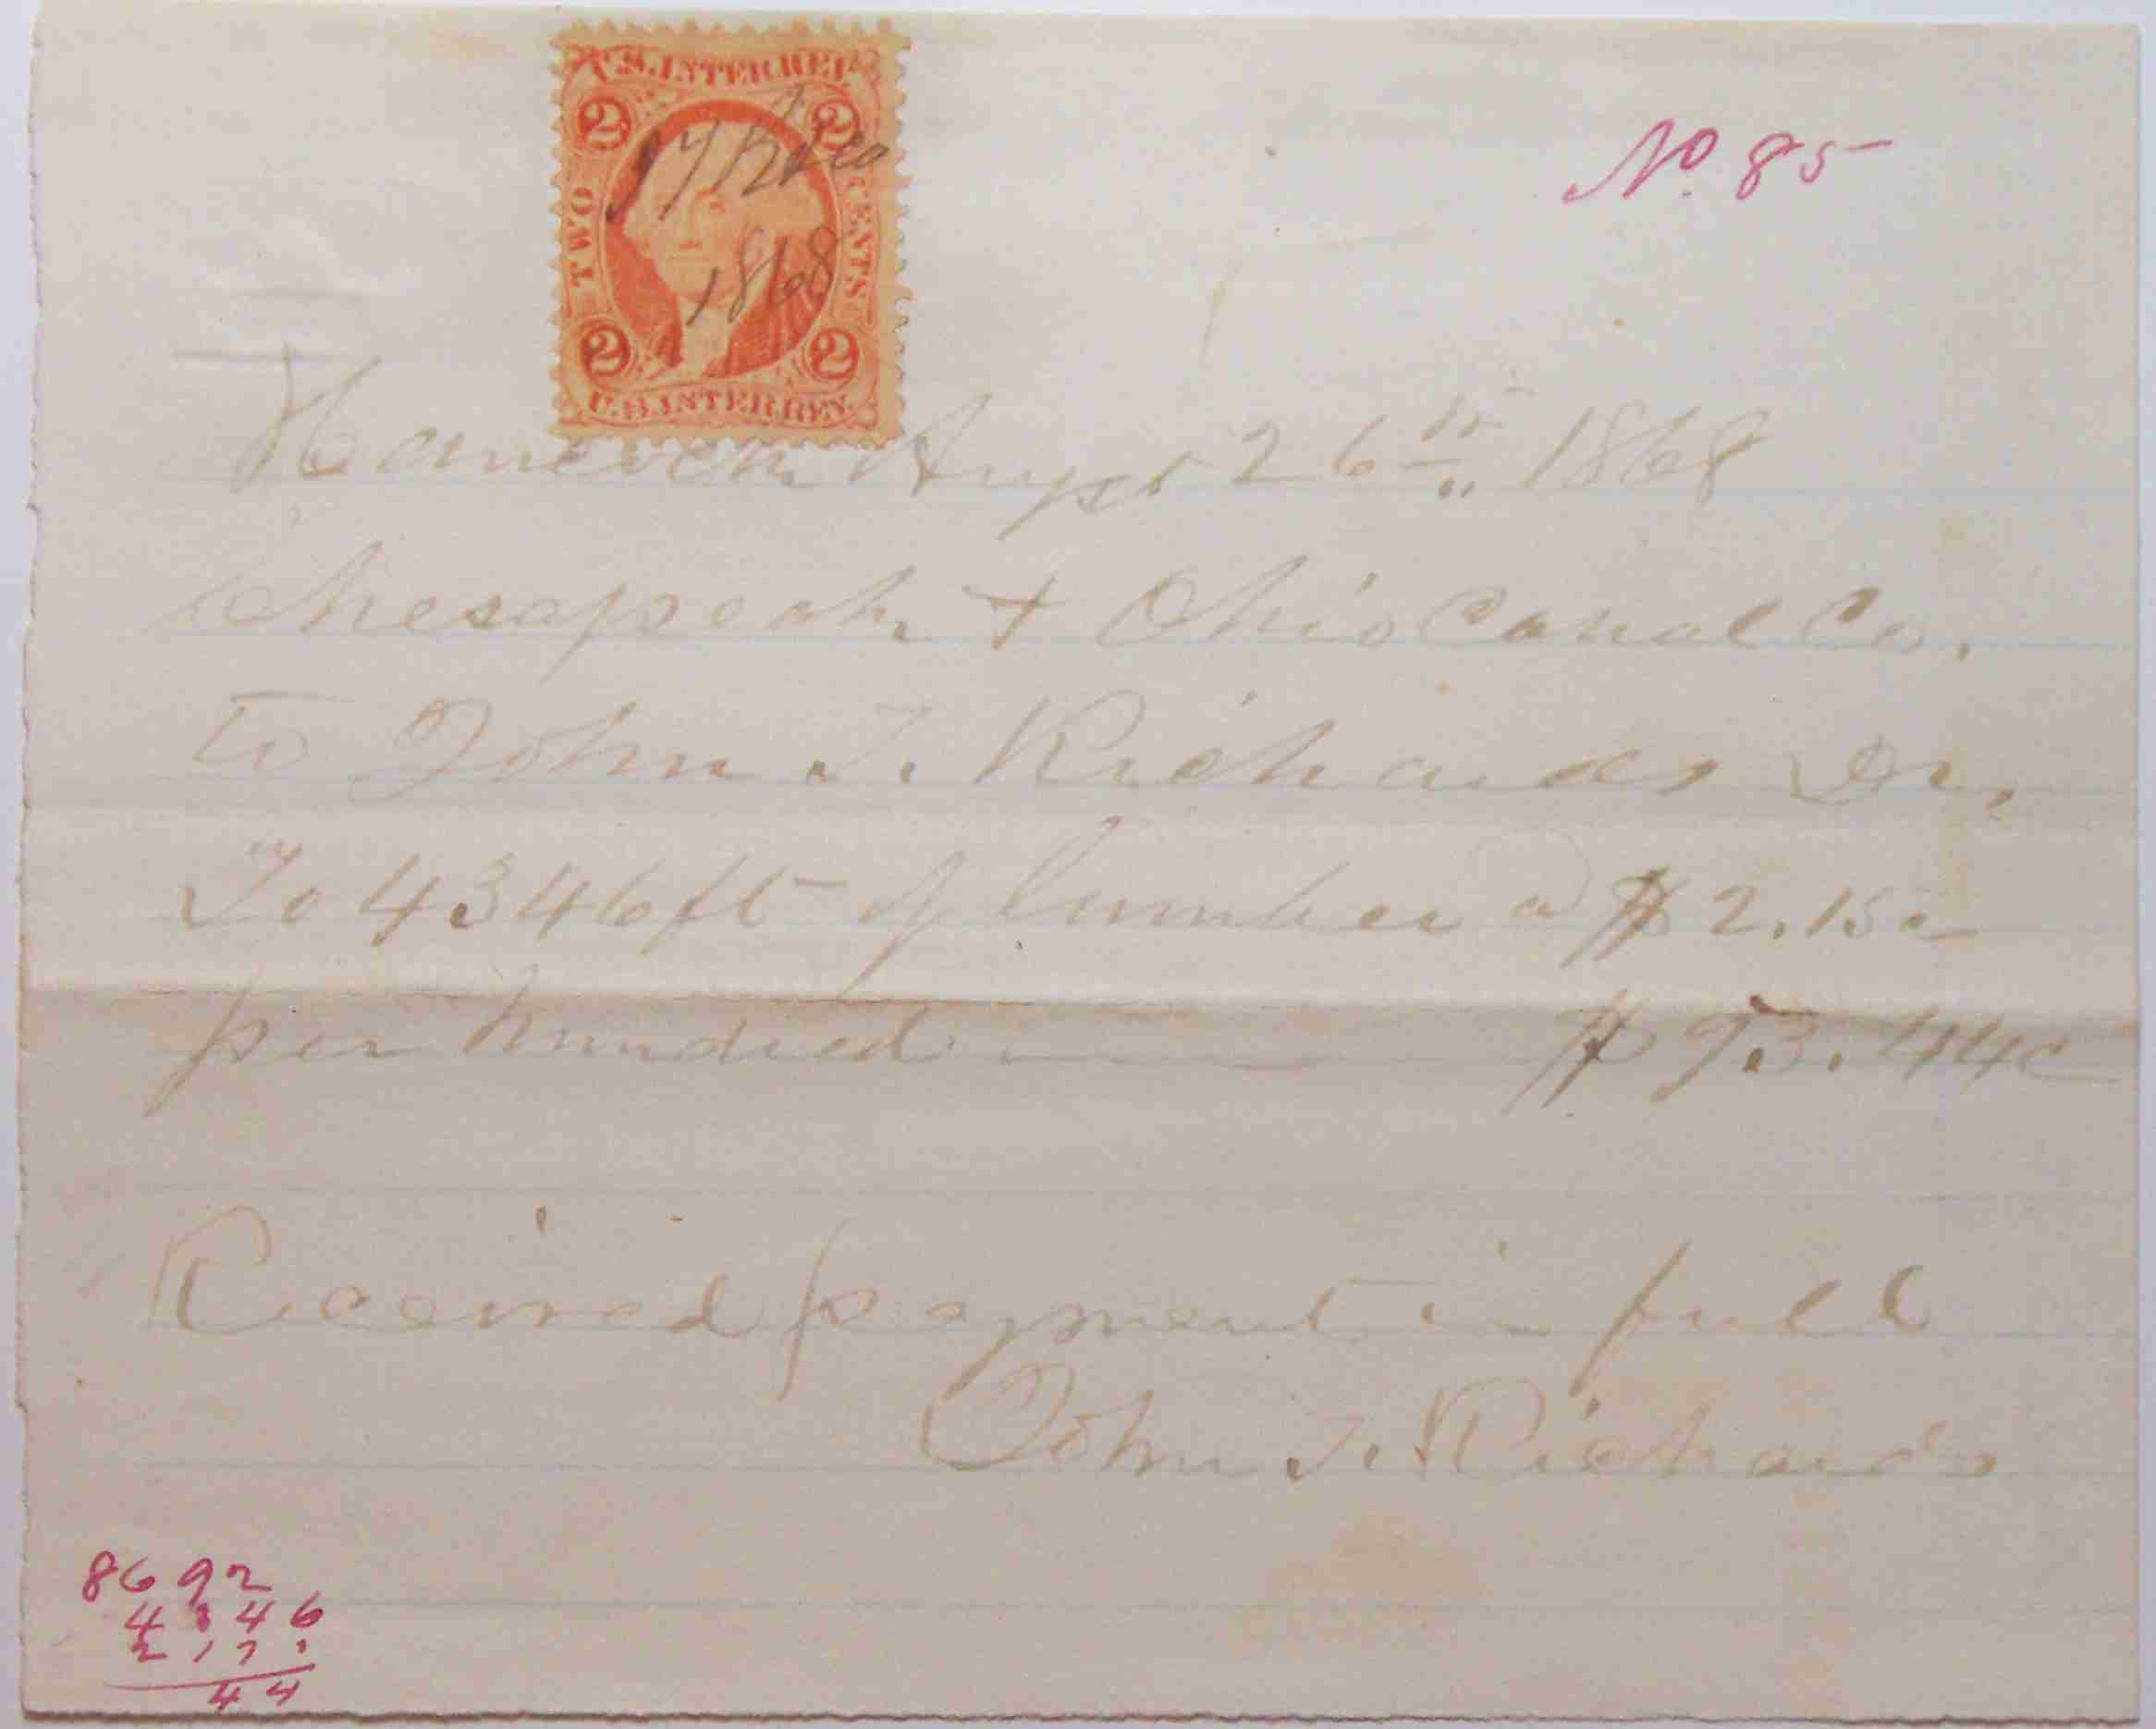 U.S. INTER. REV.
2 2
TWO CENTS
1868
2 2
U.S. INTER. REV.
No. 85
Hancock Augst 26th 1868
Chesapeake + Ohio Canal Co.
to John T. Richards Dr.
To 4346 ft of lumber a $2.15c
per hundred $93.44c
Received payment in full
John T. Richards
8692
4346
217
44